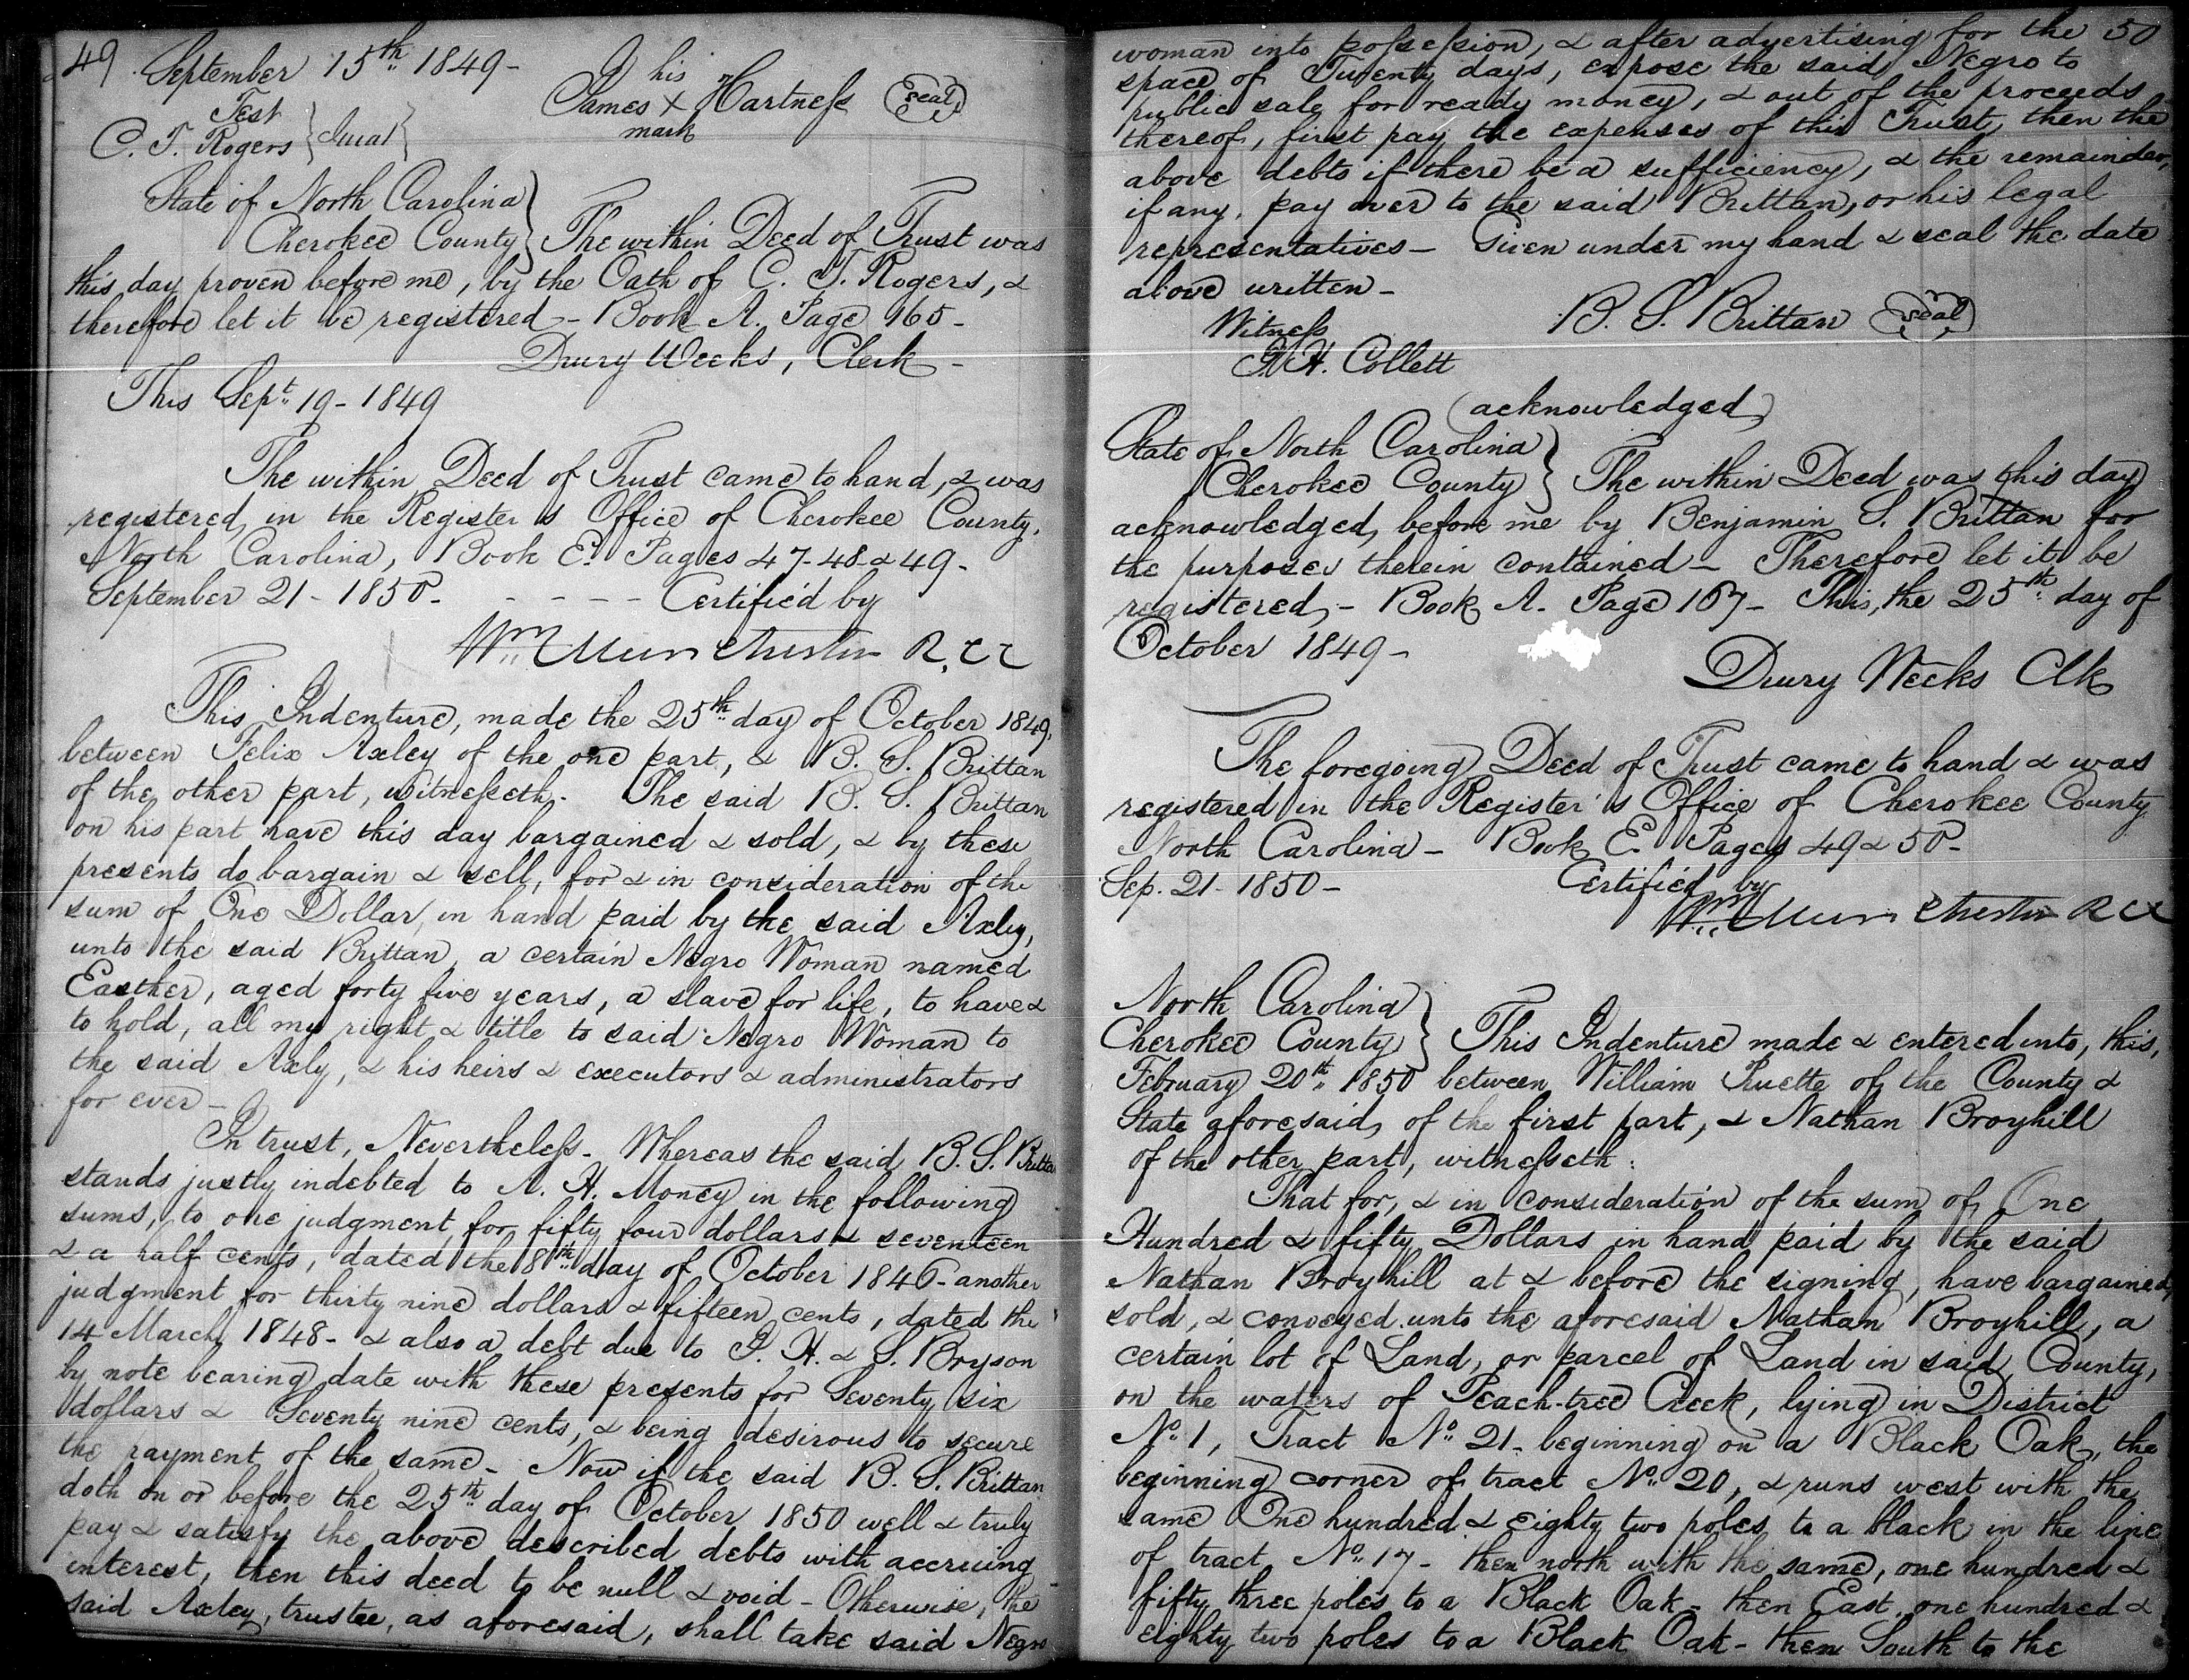 49
September 15th 1849 -
Test
C. T. Rogers } Jurat }
his
James X Hartness (seal)
mark
State of North Carolina }
Cherokee County } The within Deed of Trust was
this day proven before me, by the Oath of C. T. Rogers, &
therefore let it be registered - Book A. Page 165 -
Drury Weeks, Clerk -
This Sept. 19 - 1849
The within Deed of Trust came to hand, & was
registered in the Register's Office of Cherokee County,
North Carolina, Book E. Pages 47-48 & 49 -
September 21 - 1850 - - - - - Certified by
Wm R.C.C
This Indenture, made the 25th day of October 1849,
between Felix Axley of the one part, & B. S. Brittan
of the other part, witnesseth - The said B. S. Brittan
on his part have this day bargained & sold, & by these
presents do bargain & sell, for & in consideration of the
sum of One Dollar, in hand paid by the said Axley,
unto the said Brittan, a certain Negro Woman named
Easther, aged forty five years, a slave for life, to have &
to hold, all my right & title to said Negro Woman to
the said Axly, & his heirs & executors & administrators
for ever -
In trust, Nevertheless - Whereas the said B. S. Britta
stands justly indebted to A. H. Money in the following
sums, to one judgment for fifty four dollars & seventeen
& a half cents, dated the 8th day of October 1846 - another
judgment for thirty nine dollars & fifteen cents, dated the
14 March 1848 - & also a debt due to J. H. & S. Bryson
by note bearing date with these presents for Seventy six
dollars & Seventy nine cents, & being desirous to secure
the payment of the same - Now if the said B. S. Brittan
doth on or before the 25th day of October 1850 well & truly
pay & satisfy the above described debts with accruing
interest, then this deed to be null & void - Otherwise, the
said Axley, trustee, as aforesaid, shall take said Negro
50
woman into possession, & after advertising for the
space of Twenty days, expose the said Negro to
public sale for ready money, & out of the proceeds
thereof, first pay the expenses of this Trust, then the
above debts if there be a sufficiency, & the remainder,
if any, pay over to the said Brittan, or his legal
representatives - Given under my hand & seal the date
above written -
Witness B. S. Brittan (seal)
H. Collett
(acknowledged)
State of North Carolina }
Cherokee County } The within Deed was this day
acknowledged before me by Benjamin S. Brittan for
the purposes therein contained - Therefore let it be
registered, - Book A - Page 167 - This, the 25th day of
October 1849 -
Drury Weeks Clk
The foregoing Deed of Trust came to hand & was
registered in the Register's Office of Cherokee County
North Carolina - Book E. Pages 49 & 50 -
Sep. 21 - 1850 - Certified by
Wm R.C.C
North Carolina }
Cherokee County } This Indenture made & entered into, this,
February 20th 1850 between William Pruette of the County &
State aforesaid, of the first part, & Nathan Broyhill
of the other part, witnesseth:
That for, & in consideration of the sum of One
Hundred & fifty Dollars in hand paid by the said
Nathan Broyhill at & before the signing, have bargained,
sold, & conveyed unto the aforesaid Nathan Broyhill, a
certain lot of Land, or parcel of Land in said County,
on the waters of Peach-tree Creek, lying in District
No. 1, Tract No. 21 - beginning on a Black Oak, the
beginning corner of tract No. 20, & runs west with the
same One hundred & eighty two poles to a black in the line
of tract No. 17 - then north with the same, one hundred &
fifty three poles to a Black Oak - then East, one hundred &
eighty two poles to a Black Oak - then South to the